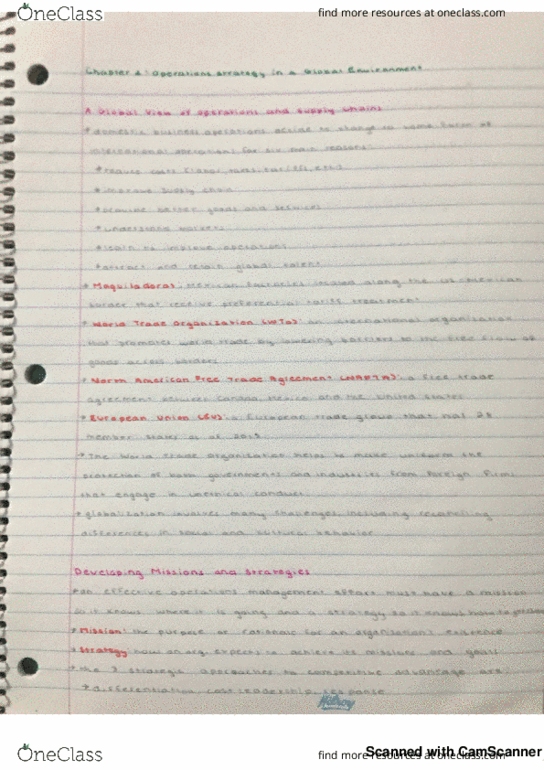 OneClass
find more resources at oneclass.com
Chapter 2: Operations strategy in a Global Environment
A Global View of operations and supply chains
* domestic business operations decide to change to some form of
international operations for six main reasons:
* reduce costs (labor, taxes, tariffs, etc.)
* improve supply chain
* provide better goods and services
* understand markets
* learn to improve operations
* attract and retain global talent
* Maquiladoras: Mexican factories located along the US-Mexican
border that receive preferential tariff treatment
* World Trade Organization (WTO): an international organization
that promotes world trade by lowering barriers to the free flow of
goods across borders
* North American Free Trade Agreement (NAFTA): a free trade
agreement between Canada, Mexico and the United States
* European Union (EU): a European trade group that has 28
member states as of 2015
* The World Trade Organization helps to make uniform the
protection of both governments and industries from foreign firms
that engage in unethical conduct
* globalization involves many challenges including reconciling
differences in social and cultural behavior
Developing Missions and Strategies
* an effective operations management effort must have a mission
so it knows where it is going and a strategy so it knows how to
* Mission: the purpose or rationale for an organization's existence
* Strategy: how an org. expects to achieve its missions and goals
* the 3 strategic approaches to competitive advantage are:
→ differentiation, cost leadership, response
Hilroy
Scanned with CamScanner
OneClass
find more resources at oneclass.com